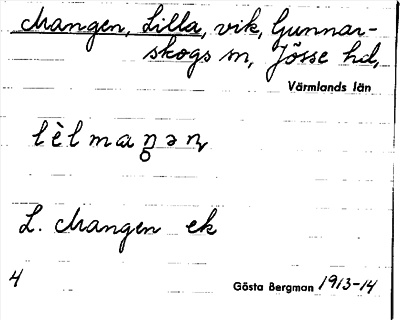 Mangen, Lilla, vik, Gunnar-
skogs sn, Jösse hd,
Värmlands län
lèlmaŋən
L. Mangen ek
4
Gösta Bergman 1913-14